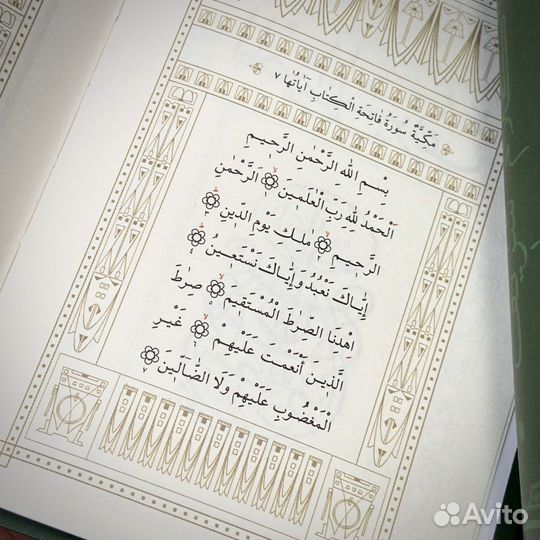 مَكِّيَّةٌ سُورَةُ فَاتِحَةِ الْكِتَابِ آيَاتُهَا ٧
بِسْمِ اللّٰهِ الرَّحْمٰنِ الرَّحِيمِ
اَلْحَمْدُ لِلّٰهِ رَبِّ الْعٰلَمِينَ ۝ الرَّحْمٰنِ
الرَّحِيمِ ۝ مٰلِكِ يَوْمِ الدِّينِ ۝
إِيَّاكَ نَعْبُدُ وَإِيَّاكَ نَسْتَعِينُ ۝
اِهْدِنَا الصِّرٰطَ الْمُسْتَقِيمَ ۝ صِرٰطَ
الَّذِينَ أَنْعَمْتَ عَلَيْهِمْ ۝ غَيْرِ
الْمَغْضُوبِ عَلَيْهِمْ وَلَا الضَّالِّينَ ۝ ٧
Avito